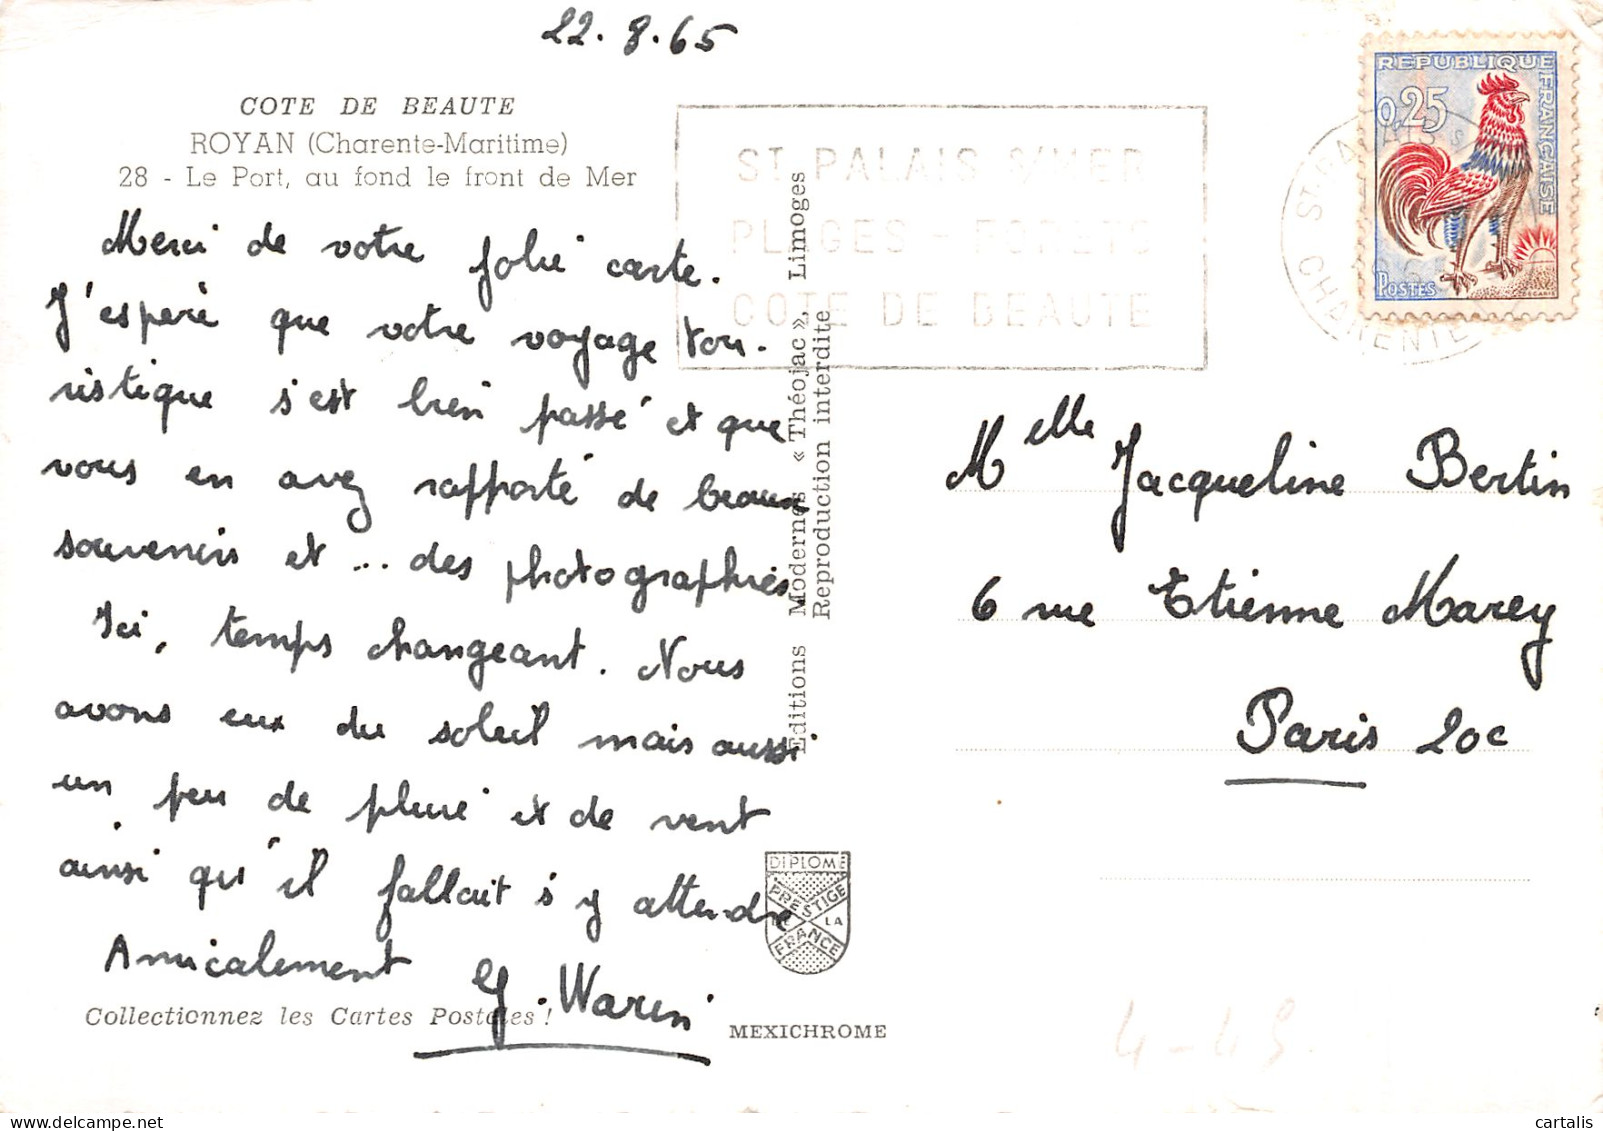 22.8.65
COTE DE BEAUTE
ROYAN (Charente-Maritime)
28 - Le Port, au fond le front de Mer
Merci de votre jolie carte.
J'espère que votre voyage tou-
ristique s'est bien passé et que
vous en avez rapporté de beaux
souvenirs et ... des photographies.
Ici, temps changeant. Nous
avons eux du soleil mais aussi
un peu de pluie et de vent
ainsi qu'il fallait s'y attendre
Amicalement
Collectionnez les Cartes Postales !
MEXICHROME
Editions Modernes « Théojac », Limoges
Reproduction interdite
DIPLOME
PRESTIGE
DE LA
FRANCE
ST PALAIS S/MER
PLAGES - FORETS
COTE DE BEAUTE
REPUBLIQUE FRANCAISE
0,25
POSTES
CHARENTE
Melle Jacqueline Bertin
6 rue Etienne Marey
Paris 20e
cartalis
www.delcampe.net